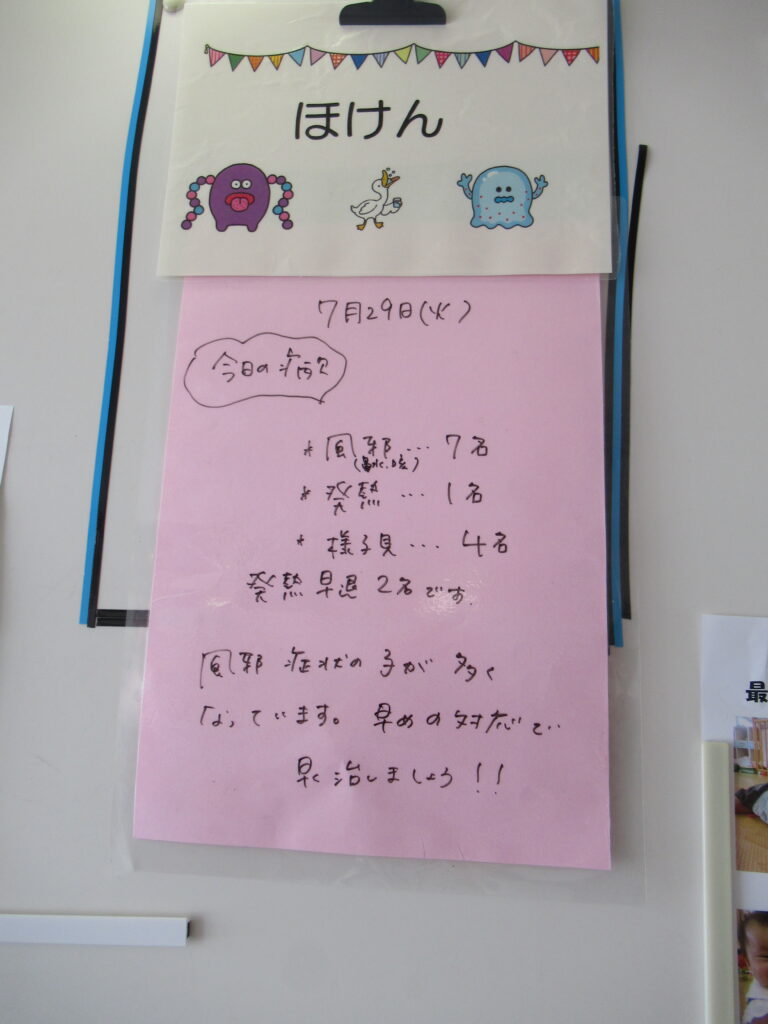 ほけん
7月29日(火)
今日の病欠
* 風邪… 7名
(鼻水.咳)
* 発熱 … 1名
* 様子見… 4名
発熱早退 2名です.
風邪 症状の子が 多く
なっています。 早めの対応で
早く治しましょう!!
最